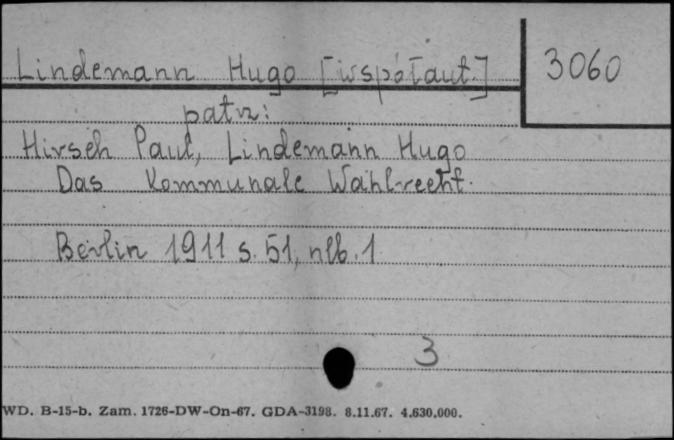 Lindemann Hugo [współaut.] 3060
patrz:
Hirsch Paul, Lindemann Hugo
Das Kommunale Wahlrecht.
Berlin 1911 s. 51, nlb. 1
3
WD. B-15-b. Zam. 1726-DW-On-67. GDA-3198. 8.11.67. 4.630.000.